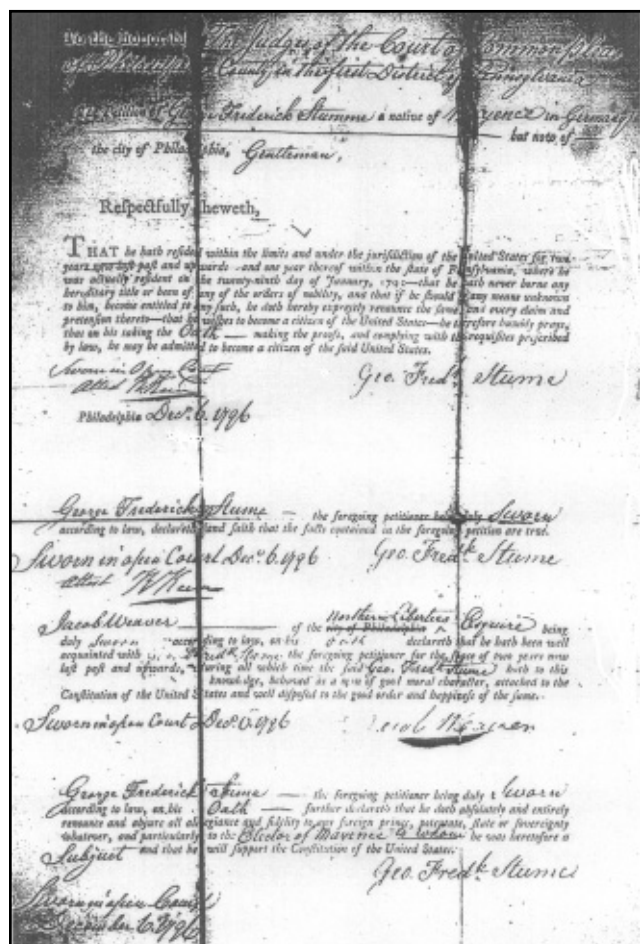 To the Honorable The Judges of the Court of Common Pleas
of Philadelphia County in the first District of Pennsylvania
Petition of George Frederick Stumme a native of Mayence in Germany
but now of
the city of Philadelphia, Gentleman,
Respectfully sheweth,
THAT he hath resided within the limits and under the jurisdiction of the United States for two
years last past and upwards and one year thereof within the state of Pennsylvania, where he
was actually resident on the twenty-ninth day of January, 1795—that he hath never borne any
hereditary title or been of any of the orders of nobility, and that if he should by any means unknown
to him, become entitled to any such, he doth hereby expressly renounce the same, and every claim and
pretension thereto—that he wishes to become a citizen of the United States—he therefore humbly prays,
that on his taking the Oath — making the proofs, and complying with the requisites prescribed
by law, he may be admitted to become a citizen of the said United States.
Sworn in Open Court
Attest
Geo. Fredk. Stume
Philadelphia Decr. 6. 1796
George Frederick Stume — the foregoing petitioner being duly Sworn
according to law, declareth and saith that the facts contained in the foregoing petition are true.
Sworn in open Court Decr. 6. 1796 Geo. Fredk. Stume
attest
Jacob Weaver of the city of Philadelphia Northern Liberties Esquire being
duly sworn according to law, on his oath declareth that he hath been well
acquainted with Geo. Fredk Stume the foregoing petitioner for the space of two years now
last past and upwards, during all which time the said Geo. Fredk Stume hath to this
knowledge, behaved as a man of good moral character, attached to the
Constitution of the United States and well disposed to the good order and happiness of the same.
Sworn in open Court Decr. 6. 1796 Jacob Weaver
George Frederick Stume — the foregoing petitioner being duly Sworn
according to law, on his Oath — further declareth that he doth absolutely and entirely
renounce and abjure all allegiance and fidelity to any foreign prince, potentate, state or sovereignty
whatever, and particularly to the Elector of Mayence to whom he was heretofore a
Subject and that he will support the Constitution of the United States.
Geo. Fredk. Stume
Sworn in open Court
December 6. 1796